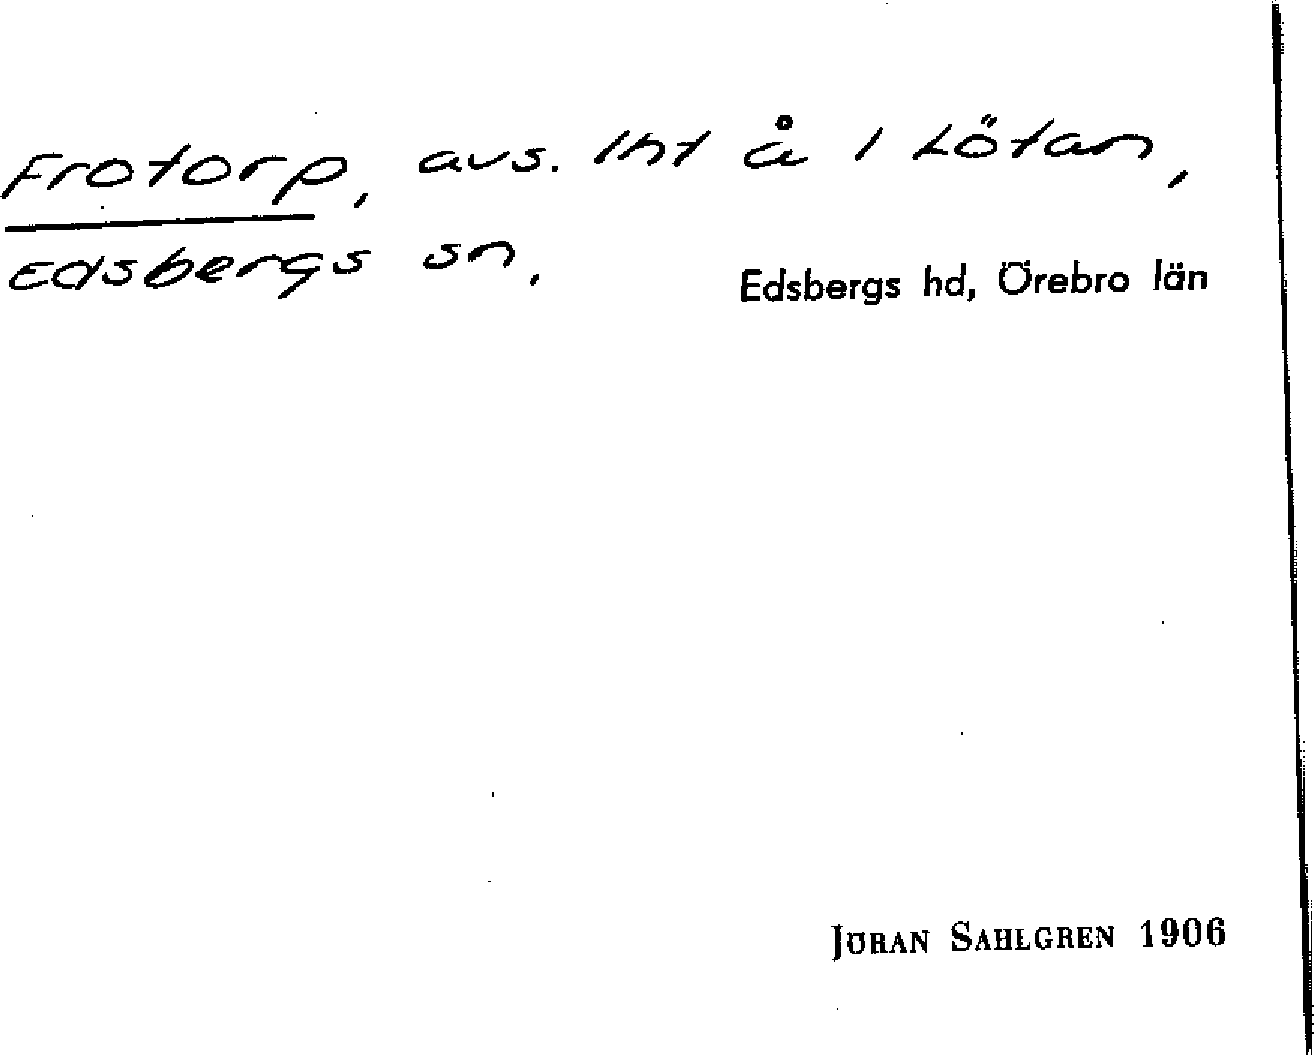 Frotorp, avs. lht å i Lötan,
Edsbergs sn, Edsbergs hd, Örebro län
JÖRAN SAHLGREN 1906